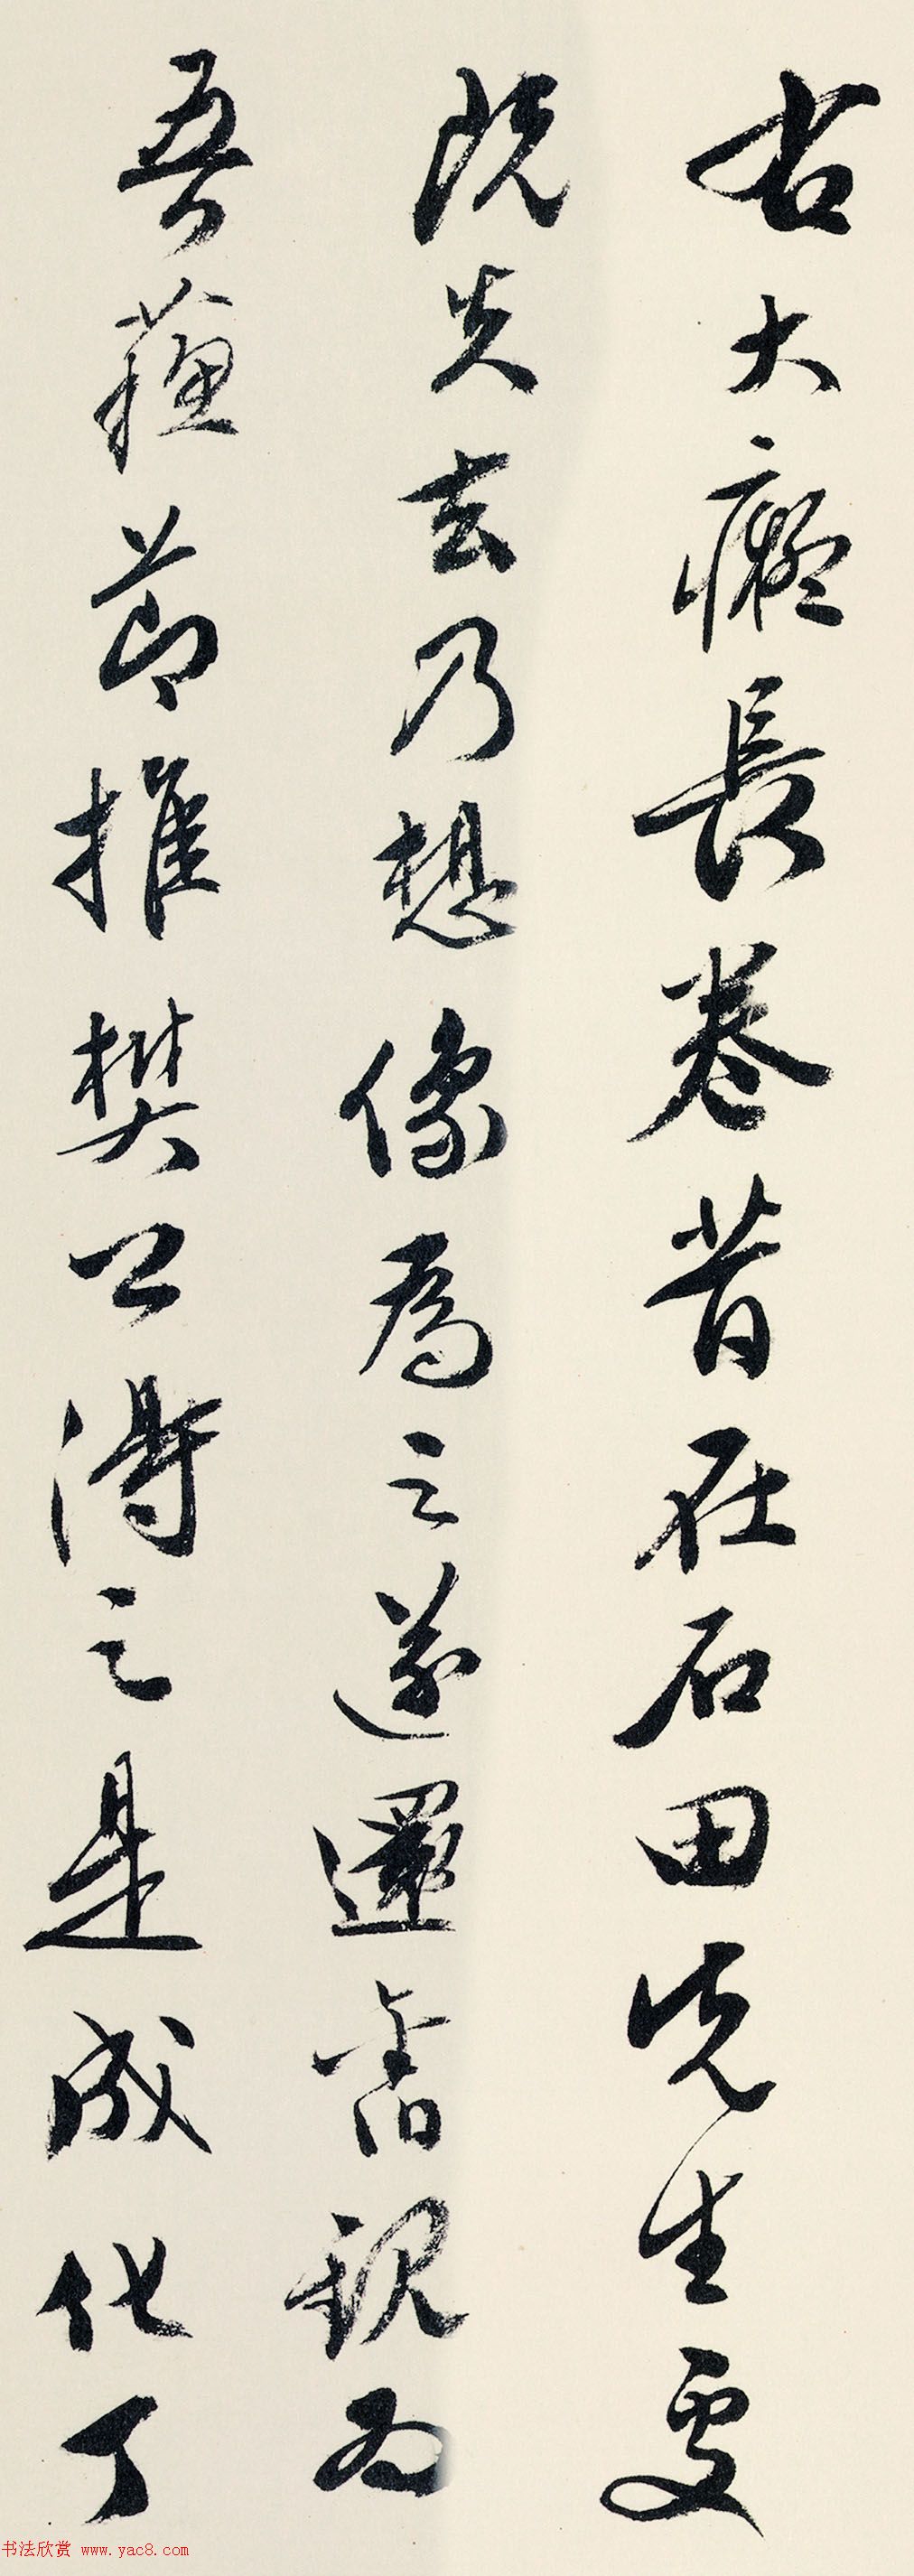 右大癡長卷昔在石田先生處
既失去乃想像為之遂還舊觀為
吾蘇節推樊公得之是成化丁
书法欣赏 www.yac8.com